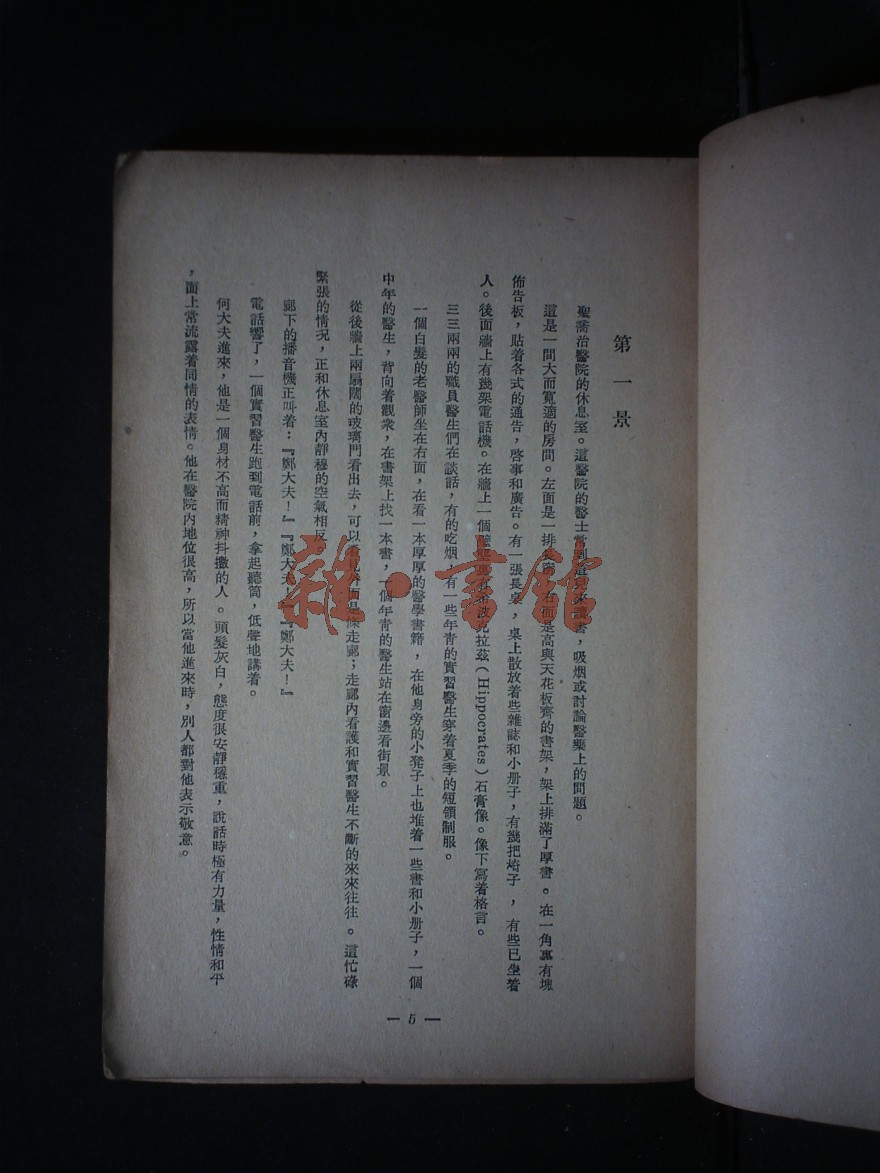 第一景
聖喬治醫院的休息室。這醫院的醫士常到這兒來讀書，吸烟或討論醫藥上的問題。
這是一間大而寬適的房間。左面是一排長窗，右面是高與天花板齊的書架，架上排滿了厚書。在一角裏有塊
佈告板，貼着各式的通告，啓事和廣告。有一張長桌，桌上散放着些雜誌和小册子，有幾把椅子，有些已坐着
人。後面牆上有幾架電話機。在牆上一個壁龕裏有希波克拉茲（Hippocrates）石膏像。像下寫着格言。
三三兩兩的職員醫生們在談話，有的吃烟，有一些年青的實習醫生穿着夏季的短領制服。
一個白髮的老醫師坐在右面，在看一本厚厚的醫學書籍，在他身旁的小凳子上也堆着一些書和小册子，一個
中年的醫生，背向着觀衆，在書架上找一本書，一個年青的醫生站在窗邊看街景。
從後牆上兩扇闊的玻璃門看出去，可以看見外面是條走廊；走廊內看護和實習醫生不斷的來來往往。這忙碌
緊張的情况，正和休息室內靜穆的空氣相反
廊下的播音機正叫着：『鄭大夫！』『鄭大夫！』『鄭大夫！』
電話響了，一個實習醫生跑到電話前，拿起聽筒，低聲地講着。
何大夫進來，他是一個身材不高而精神抖擻的人。頭髮灰白，態度很安靜穩重，說話時極有力量，性情和平
，面上常流露着同情的表情。他在醫院內地位很高，所以當他進來時，別人都對他表示敬意。
— 5 —
雜·書館